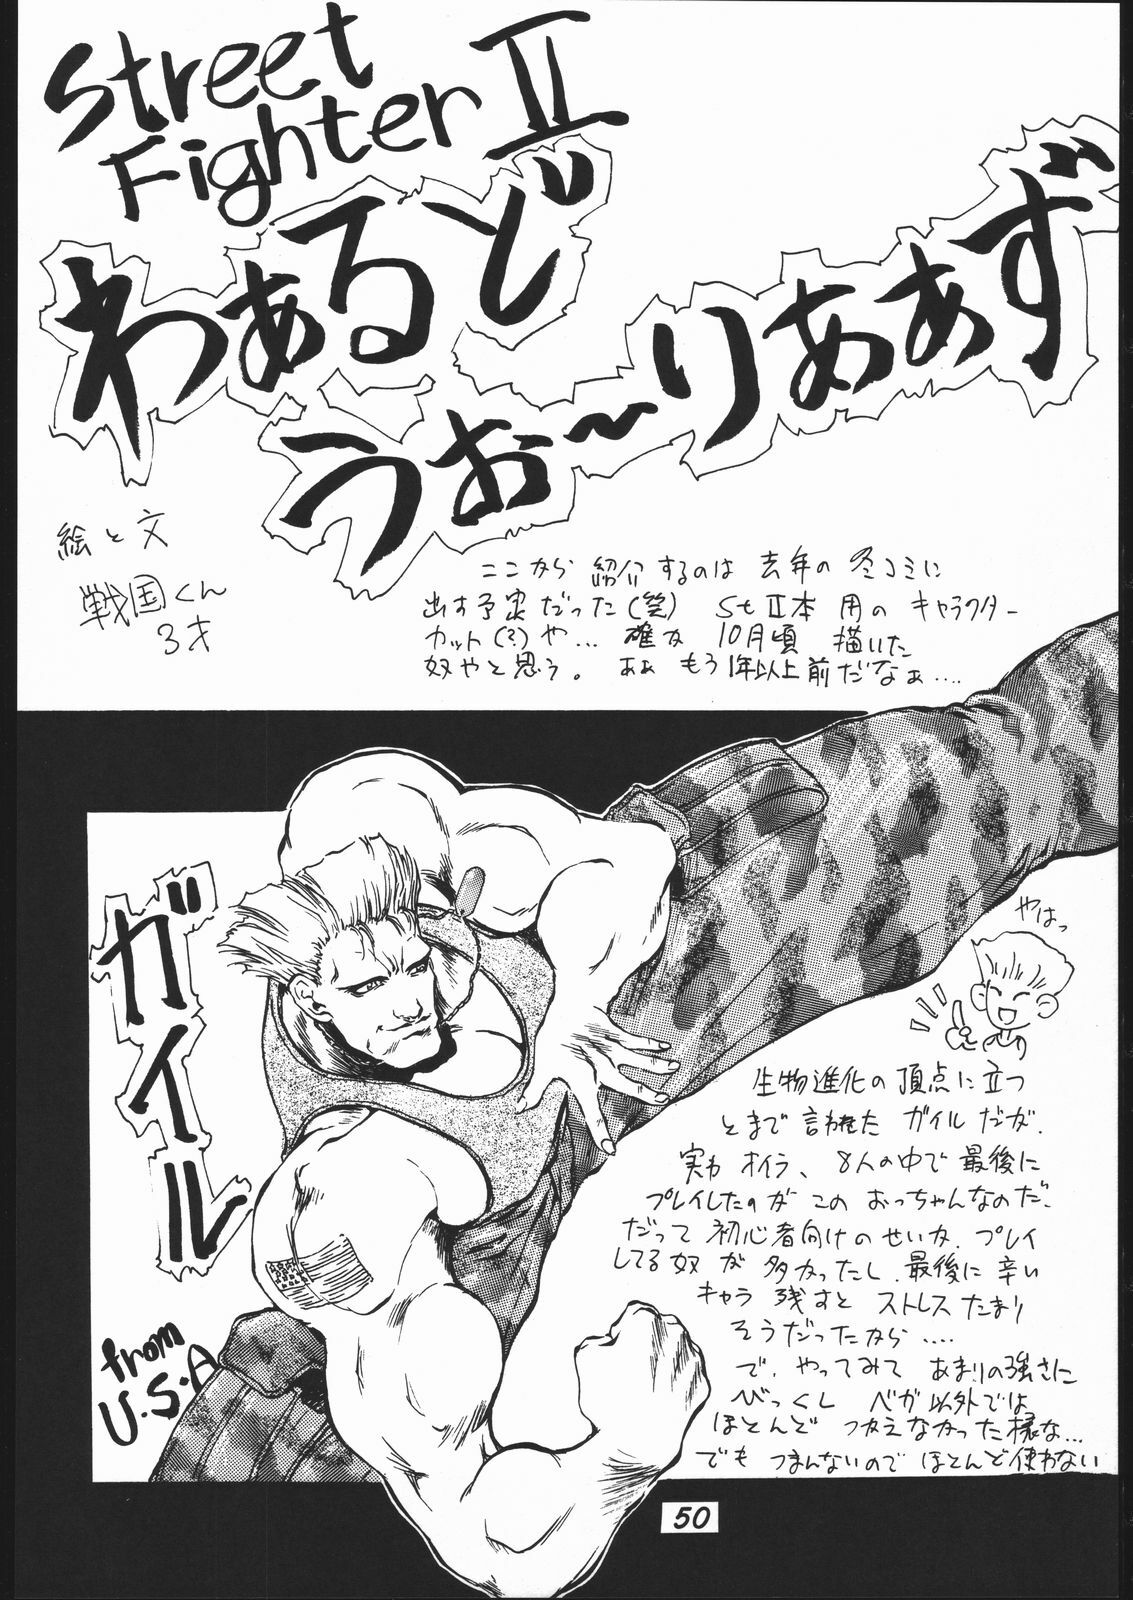 Street
Fighter II
わぁるど
うぉ〜りあぁず
絵と文
戦国くん
3才
ここから 紹介するのは 去年の 冬コミに
出す予定だった(笑) St II本 用の キャラクター
カット(?)や… 確か 10月頃 描いた
奴やと思う。 あぁ もう1年以上前だなぁ….
ガイル
from
U.S.A
やはっ
生物進化の頂点に立つ
とまで 言われた ガイルだが、
実わ オイラ、 8人の中で最後に
プレイしたのが この おっちゃんなのだ、
だって 初心者向けの せいか、プレイ
してる奴 が 多かったし、最後に 辛い
キャラ 残すと ストレスたまり
そうだったから ….
で、やってみて あまりの強さに
びっくし ベガ以外では
ほとんど つかえなかった様な…
でも つまんないので ほとんど使わない
50